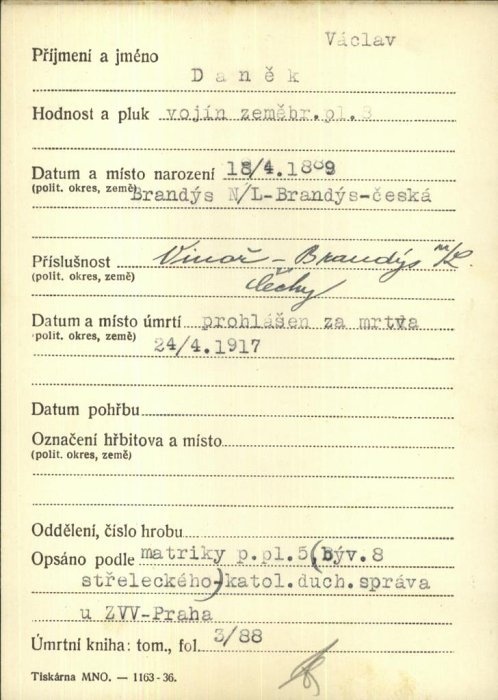 Václav
Příjmení a jméno
Daněk
Hodnost a pluk vojín zeměbr.pl.8
Datum a místo narození 18/4.1889
(polit. okres, země) Brandýs N/L-Brandýs-česká
Příslušnost Vinoř - Brandýs n/L.
(polit. okres, země) Čechy
Datum a místo úmrtí prohlášen za mrtva
(polit. okres, země) 24/4.1917
Datum pohřbu
Označení hřbitova a místo
(polit. okres, země)
Oddělení, číslo hrobu
Opsáno podle matriky p.pl.5(býv.8
střeleckého)-katol.duch.správa
u ZVV-Praha
Úmrtní kniha: tom., fol. 3/88
Tiskárna MNO. — 1163-36.